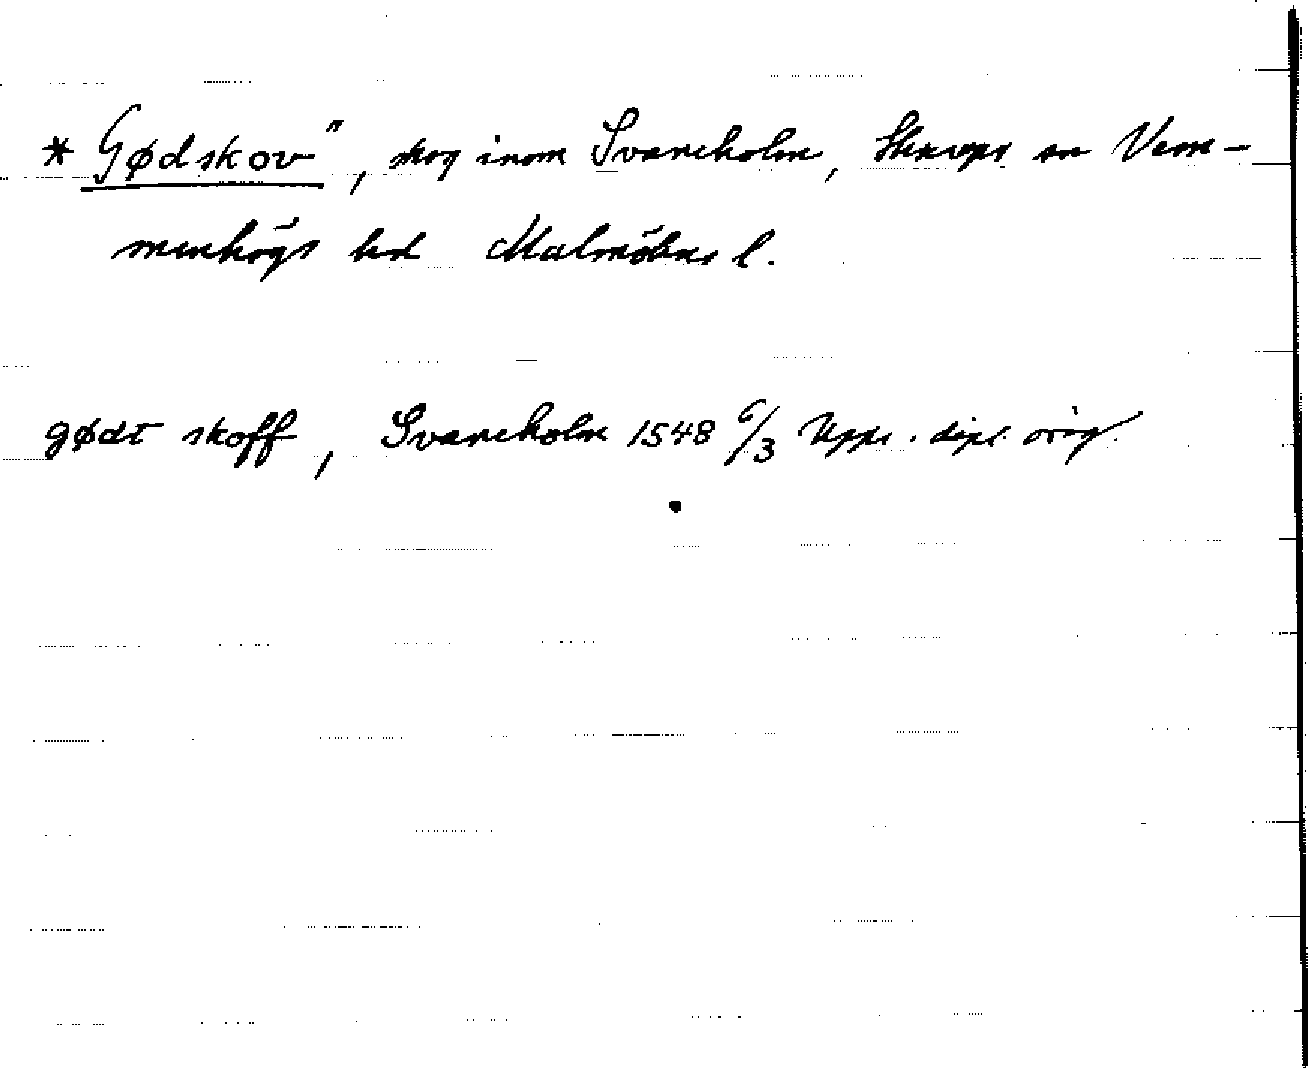 * Gødskov", skog inom Svaneholm, Skurups sn Vem-
menhögs hd Malmöhus l.
gødt skoff, Svaneholm 1548 6/3 Upps. dipl. orig.